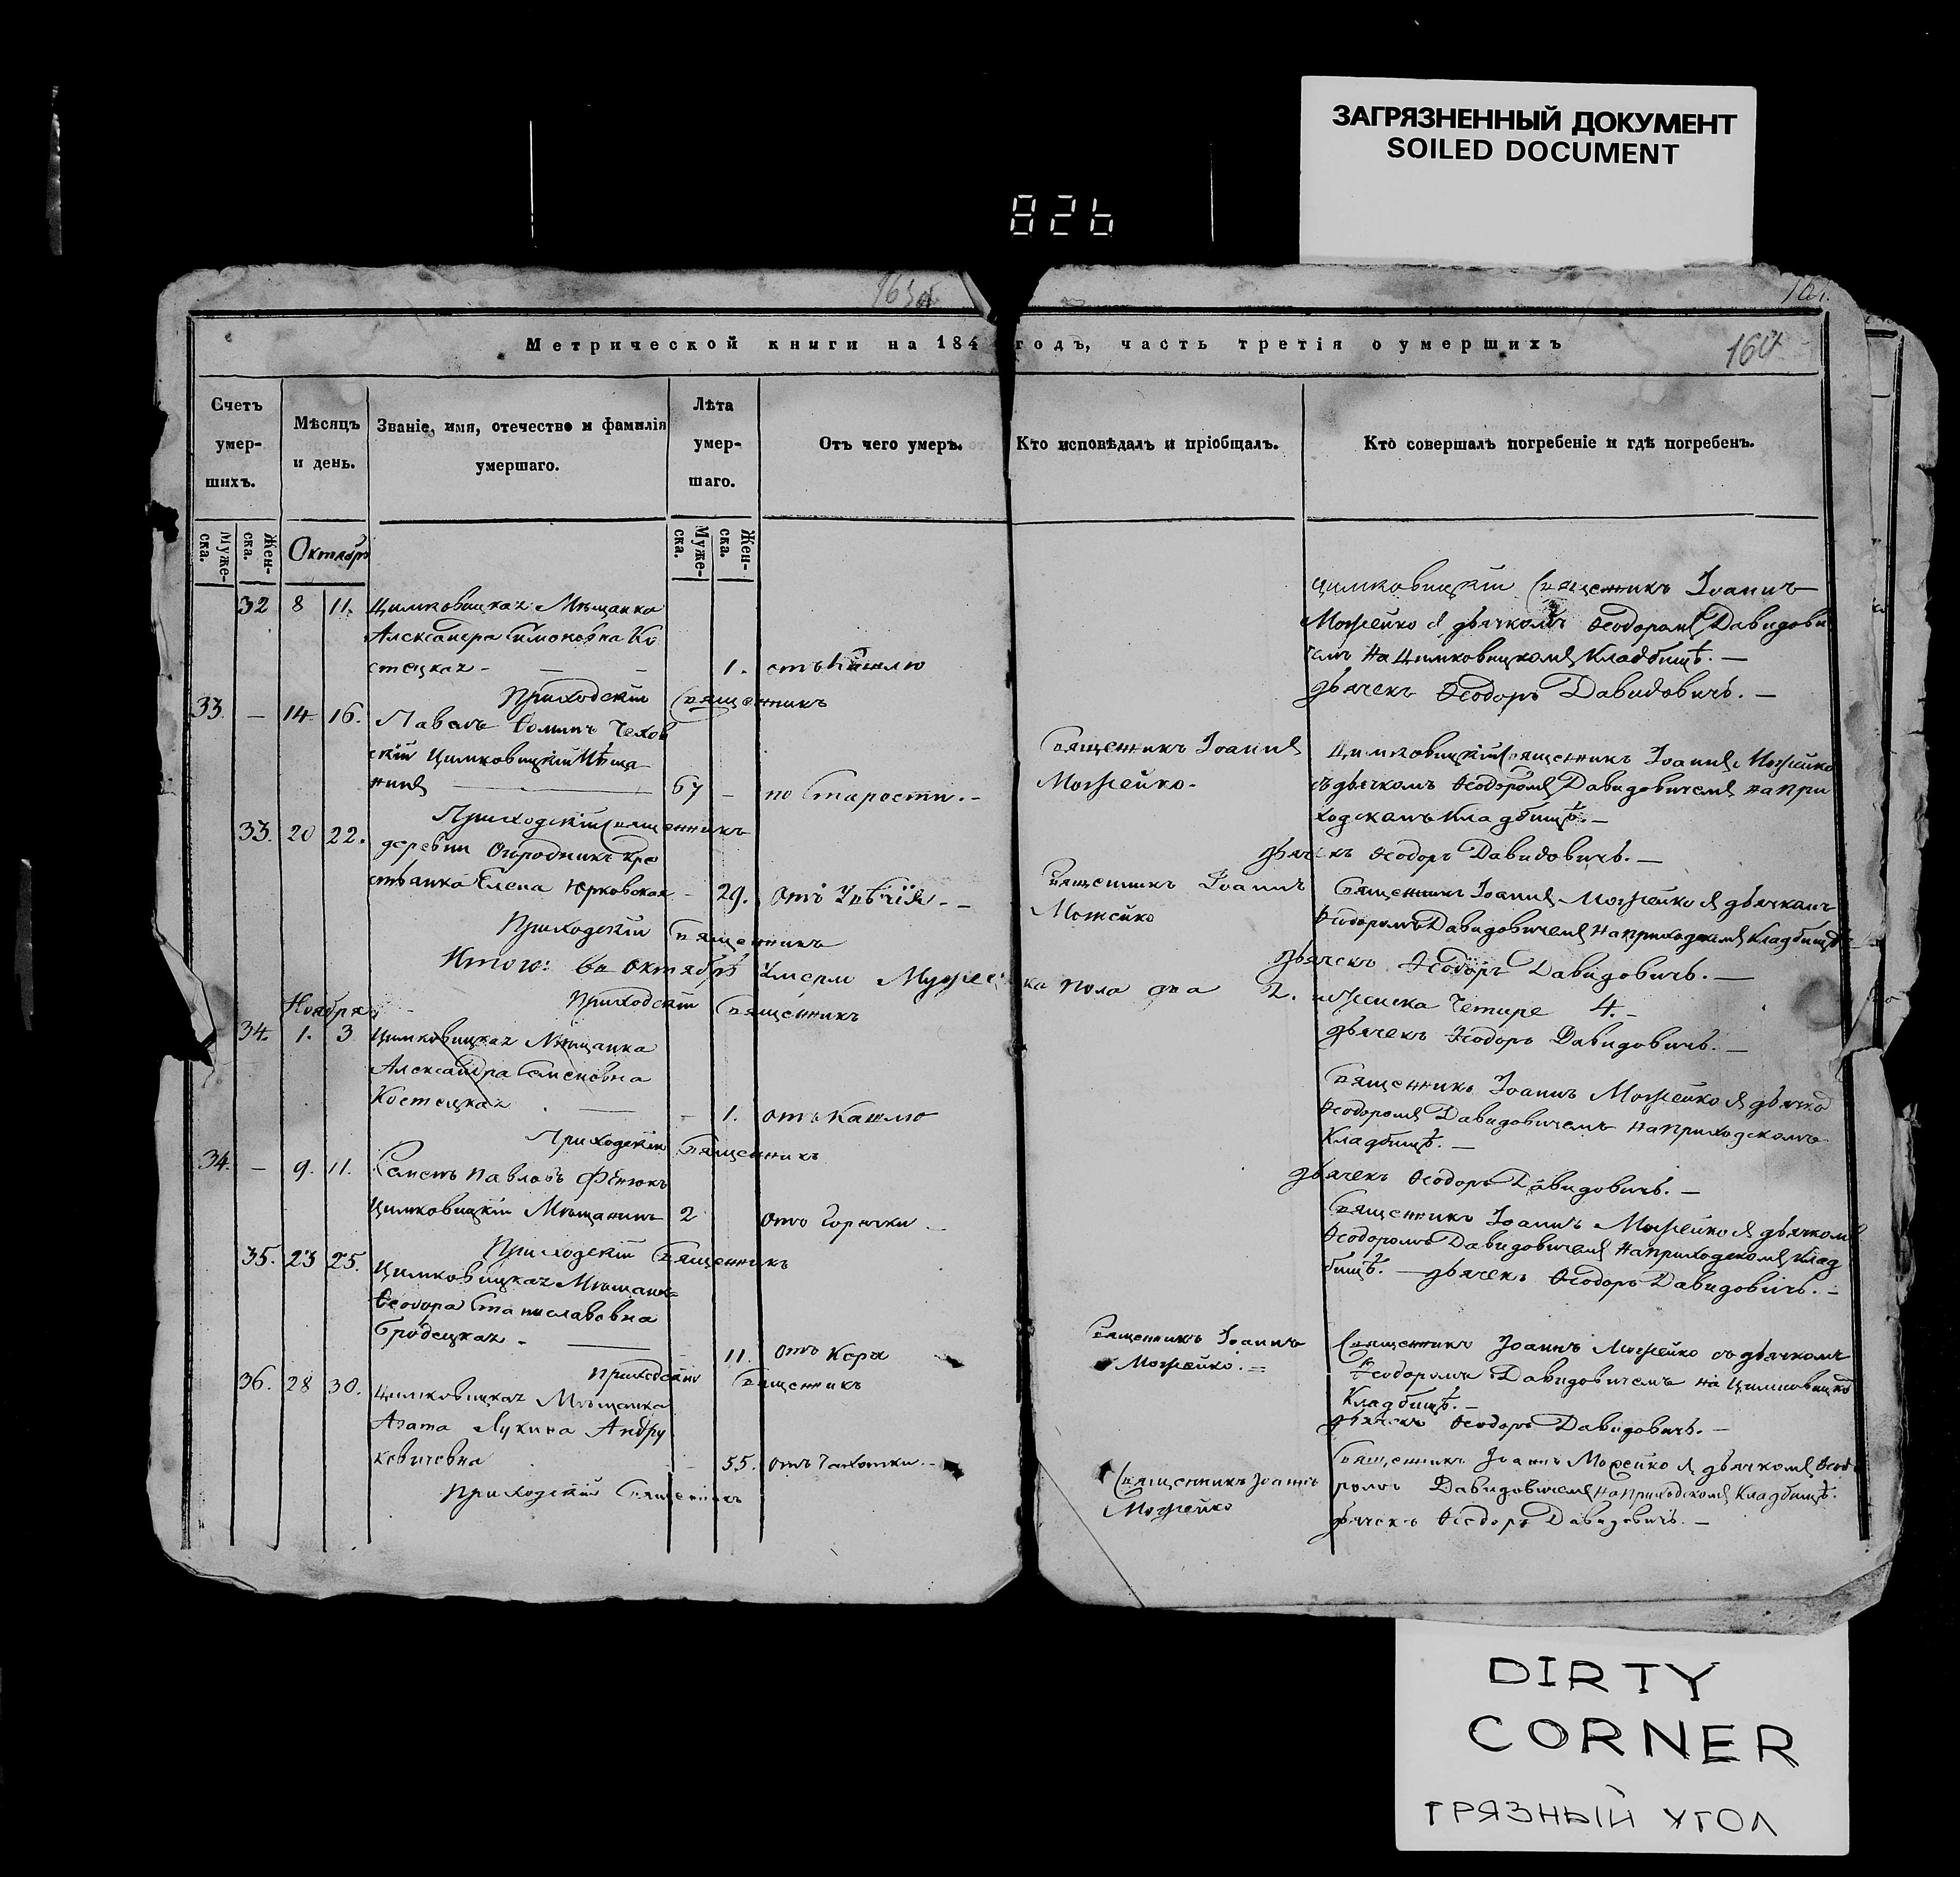 ЗАГРЯЗНЕННЫЙ ДОКУМЕНТ
SOILED DOCUMENT
826
163об
164
Метрической книги на 184 годъ, часть третія о умершихъ
Счетъ умер-шихъ.
Мѣсяцъ и день.
Званіе, имя, отечество и фамилія умершаго.
Лѣта умер-шаго.
Отъ чего умеръ.
Кто исповѣдалъ и пріобщалъ.
Кто совершалъ погребеніе и гдѣ погребенъ.
Муже-ска.
Жен-ска.
Октябрь
Муже-ска.
Жен-ска.
32 8 11. Цимковицкая Мѣщанка
Александра Симоновна Ко
стецкая - 1. отъ кашлю
Цимковицкій Священникъ Іоаннъ
Можейко съ дьячкомъ Ѳеодоромъ Давидови
чемъ на Цимковицкомъ Кладбищѣ. —
Приходскій Священникъ
дьячекъ Ѳеодоръ Давидовичъ. —
33. — 14 16. Павелъ Ѳоминъ Чехов
скій Цимковицкій Мѣща
нинъ — 67 — по Старости. -
Священникъ Іоаннъ
Можейко-
Цимковицкій Священникъ Іоаннъ Можейко
съ дьячкомъ Ѳеодоромъ Давидовичемъ на при
ходскомъ кладбищѣ. —
Приходскій Священникъ
дьячекъ Ѳеодоръ Давидовичъ. —
33. 20 22. деревни Огородникъ кре
стьянка Елена Юрковская - 29. Отъ
Священникъ Іоаннъ
Можейко
Священникъ Іоаннъ Можейко съ дьячкомъ
Ѳеодоромъ Давидовичемъ на приходскомъ Кладбищѣ
Приходскій Священникъ
дьячекъ Ѳеодоръ Давидовичъ. —
Итого: въ октябрѣ умерли Мужеска пола два 2. и Женска четире 4. -
Приходскій Священникъ
дьячекъ Ѳеодоръ Давидовичъ. —
Ноября
34. 1. 3 Цимковицкая Мѣщанка
Александра Семеновна
Костецкая — - 1. отъ Кашлю
Священникъ Іоаннъ Можейко съ дьячко
Ѳеодоромъ Давидовичемъ на приходскомъ
Кладбищѣ. —
Приходскій Священникъ
дьячекъ Ѳеодоръ Давидовичъ. —
34. — 9. 11. Семенъ Павловъ
Цимковицкій Мѣщанинъ 2 Отъ Горячки
Священникъ Іоаннъ Можейко съ дьячкомъ
Ѳеодоромъ Давидовичемъ на приходскомъ Клад
бищѣ. — дьячекъ Ѳеодоръ Давидовичъ. -
Приходскій Священникъ
35. 23 25. Цимковицкая Мѣщанка
Ѳеодора Станиславовна
Бродецкая - — 11. Отъ Коря
Священникъ Іоаннъ
Можейко. =
Священникъ Іоаннъ Можейко съ дьячкомъ
Ѳеодоромъ Давидовичемъ на Цимковицко
Кладбищѣ. —
Приходскій Священникъ
дьячекъ Ѳеодоръ Давидовичъ. —
36. 28 30. Цимковицкая Мѣщанка
Агата Лукина Андру
кевичевна - 55. отъ чахотки. -
Священникъ Іоаннъ
Можейко
Священникъ Іоаннъ Можейко съ дьячкомъ Ѳеодо
ромъ Давидовичемъ на приходскомъ Кладбищѣ.
Приходскій Священникъ
дьячекъ Ѳеодоръ Давидовичъ. —
DIRTY
CORNER
ГРЯЗНЫЙ УГОЛ